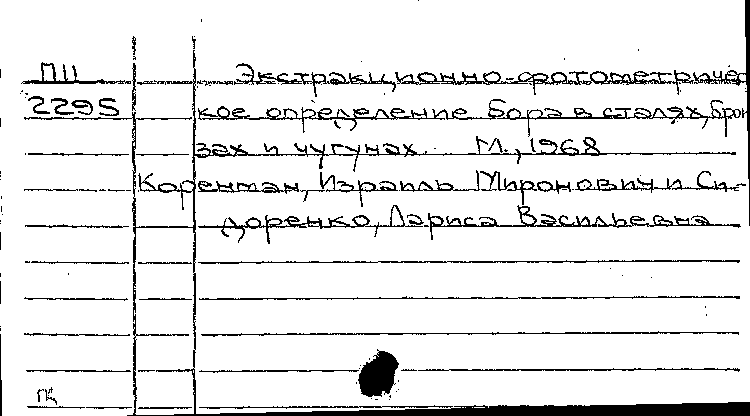 П11 Экстракционно-фотометричес
2295 кое определение бора в сталях, брон
зах и чугунах. М., 1968
Коренман, Израиль Миронович и Си-
доренко, Лариса Васильевна
ПК